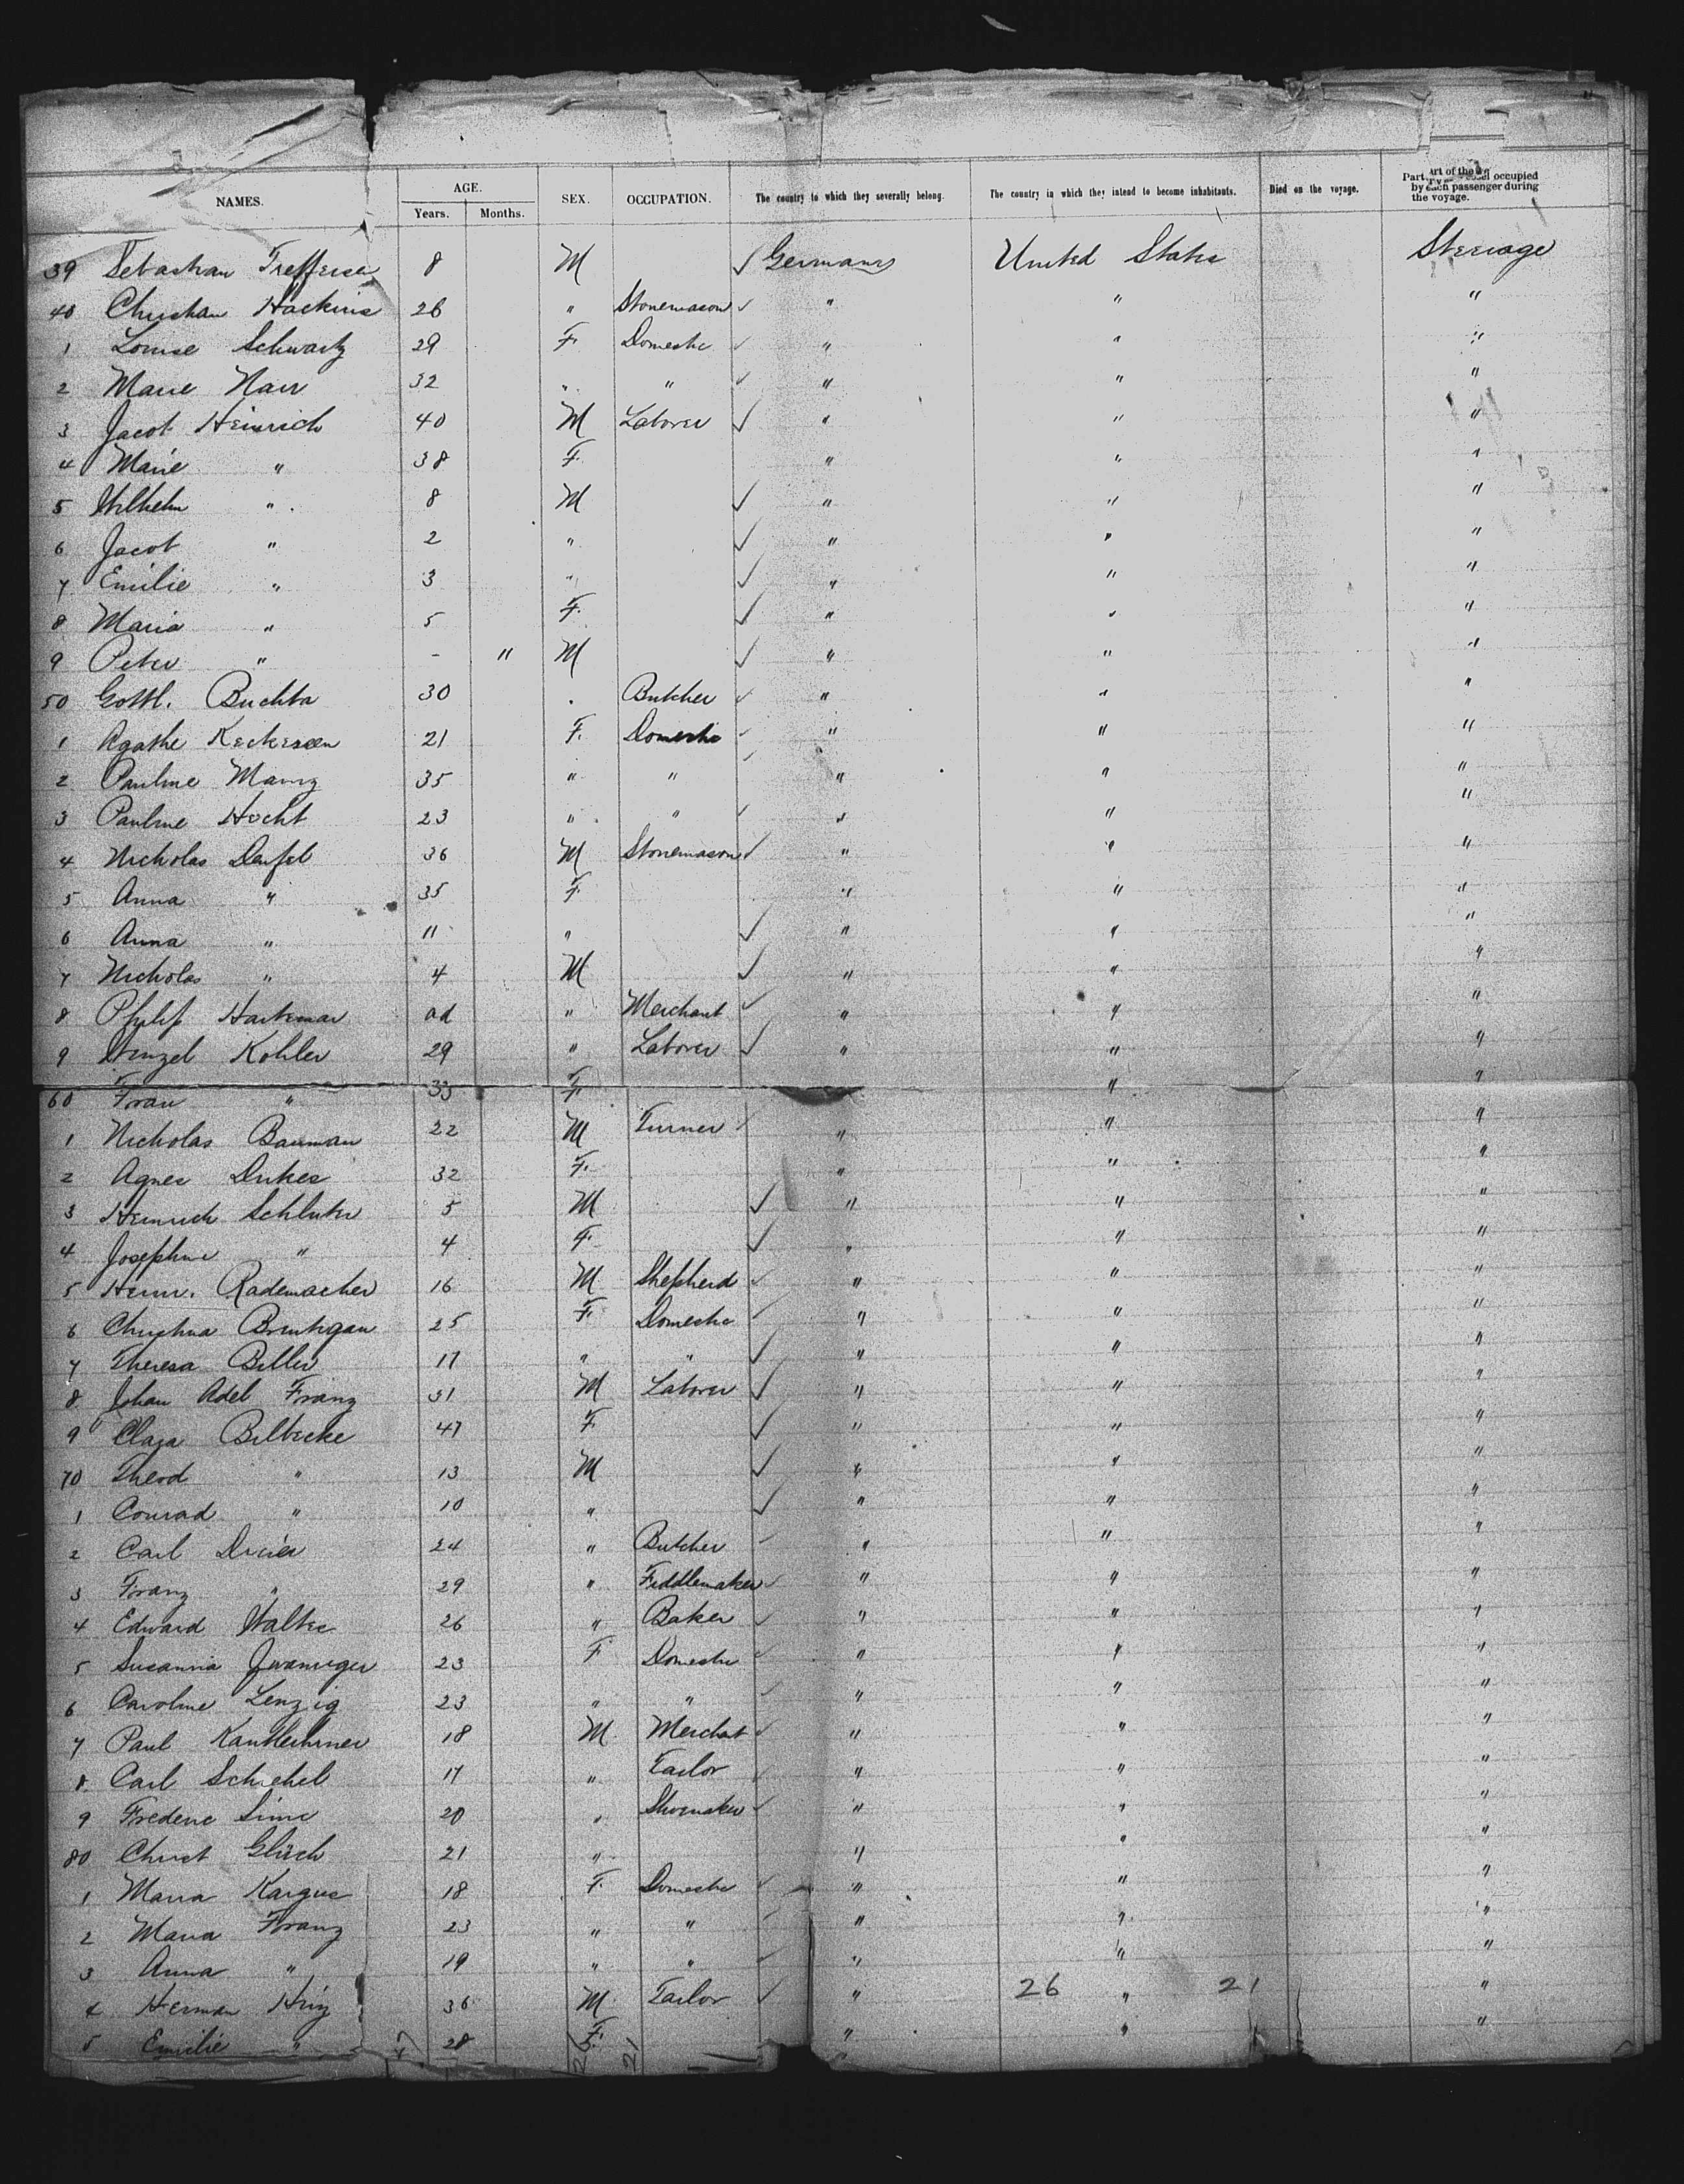 NAMES. AGE. Years. Months. SEX. OCCUPATION. The country to which they severally belong. The country in which they intend to become inhabitants. Died on the voyage. Part of the vessel occupied by each passenger during the voyage.
39 Sebastian 8 M Germany United States Steerage
40 Christian Hackius 26 " Stonemason " " "
1 Louise Schwartz 29 F Domestic " " "
2 Marie Narr 32 " " " " "
3 Jacob Heinrich 40 M Laborer " " "
4 Marie " 38 F " " "
5 Wilhelm " 8 M " " "
6 Jacob " 2 " " " "
7 Emilie " 3 " " " "
8 Maria " 5 F. " " "
9 Peter " - 11 M " " "
50 Gottl. Buchta 30 " Butcher " " "
1 Agathe 21 F. Domestic " " "
2 Pauline 35 " " " " "
3 Pauline Hecht 23 " " " " "
4 Nicholas 36 M Stonemason " " "
5 Anna " 35 F " " "
6 Anna " 11 " " " "
7 Nicholas " 4 M " " "
8 Philip Hartman ad " Merchant " " "
9 Wenzel Kohler 29 " Laborer " " "
60 Frau " 33 F " "
1 Nicholas Bauman 22 M Turner " " "
2 Agnes Dukes 32 F. " " "
3 Heinrich Schluter 5 M " " "
4 Josephine " 4 F " " "
5 Heinr. Rademacher 16 M Shepherd " " "
6 Christina 25 F. Domestic " " "
7 Theresa Biller 17 " " " " "
8 Johan Adel Franz 31 M Laborer " " "
9 Clara Bilbecke 47 F " " "
70 Theod " 13 M " " "
1 Conrad " 10 " " " "
2 Carl Dreier 24 " Butcher " " "
3 Franz " 29 " Fiddlemaker " " "
4 Edward Walter 26 " Baker " " "
5 Susanna 23 F Domestic " " "
6 Caroline Lenzig 23 " " " " "
7 Paul 18 M. Merchat " " "
8 Carl Schiehel 17 " Tailor " " "
9 Frederic Sime 20 " Shoemaker " " "
80 Christ Glück 21 " " " "
1 Maria Kargus 18 F. Domestic " " "
2 Maria Franz 23 " " " " "
3 Anna " 19 " " " " "
4 Herman 36 M. Tailor " 26 " 21 "
5 Emilie " 47 28 F. 26 21 " " "